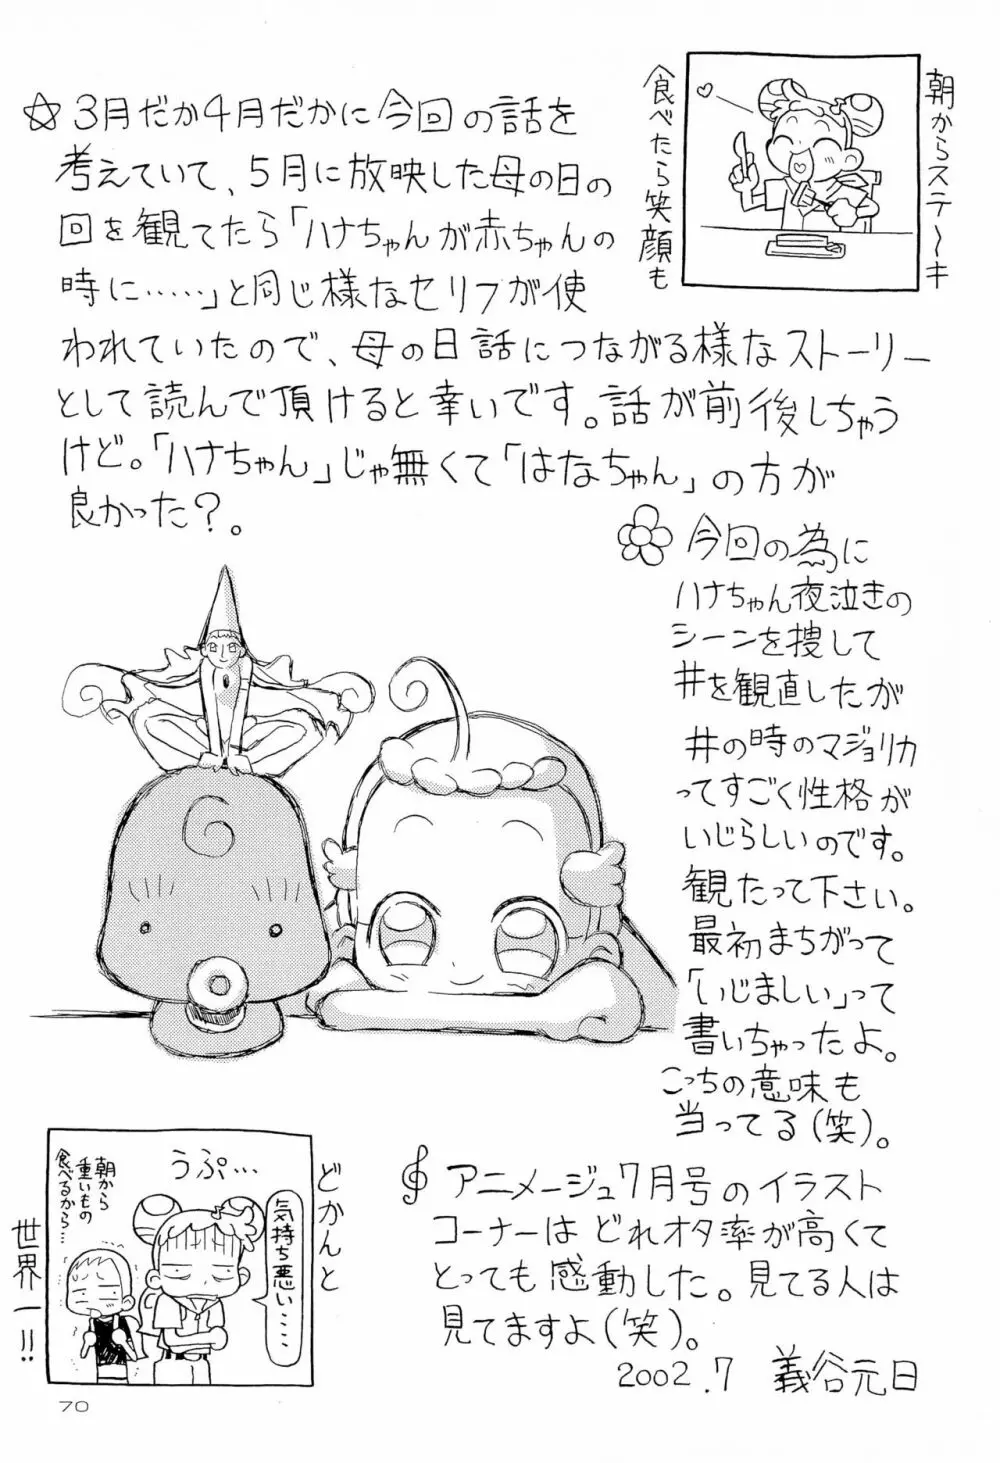 朝からステ〜キ
食べたら笑顔も
☆3月だか4月だかに今回の話を
考えていて、5月に放映した母の日の
回を観てたら「ハナちゃんが赤ちゃんの
時に……」と同じ様なセリフが使
われていたので、母の日話につながる様なストーリー
として読んで頂けると幸いです。話が前後しちゃう
けど。「ハナちゃん」じゃ無くて「はなちゃん」の方が
良かった?。
今回の為に
ハナちゃん夜泣きの
シーンを捜して
#を観直したが
#の時のマジョリカ
ってすごく性格が
いじらしいのです。
観たって下さい。
最初まちがって
「いじましい」って
書いちゃったよ。
こっちの意味も
当ってる(笑)。
アニメージュ7月号のイラスト
コーナーはどれオタ率が高くて
とっても感動した。見てる人は
見てますよ(笑)。
2002.7 義谷元日
どかんと
世界一!!
うぷ…
気持ち悪い・・・・
朝から
重いもの
食べるから…
70